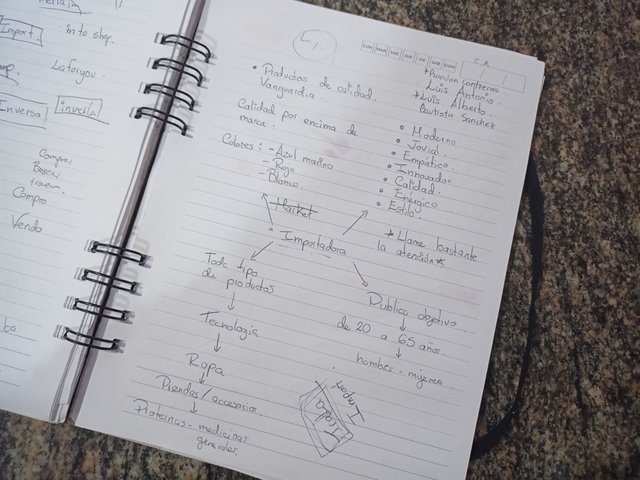 Import.
in te shop.
Laforyou.
Inversa
invesla
Comprar
Buscar
traer.
Compro
Vendo
LUN MAR MIE JUE VIE SAB DOM
C.A
• Productos de calidad.
Vanguardia
Calidad por encima de
marca.
Colores: - Azul marino
- Rojo
- Blanco
Luis Antonio.
* Luis Alberto
Bautista Sanchez
• Moderno
• Jovial.
• Empático.
• Innovador
• Calidad.
• Energico.
• Estilo
* Llame bastante
la atención *.
Market
• Importadora
Todo tipo
de productos
Tecnología
Ropa
Prendas / accesorios.
Proteinas - medicinas
generales.
Publico objetivo.
de 20 a 65 años.
hombres - mujeres.
Import